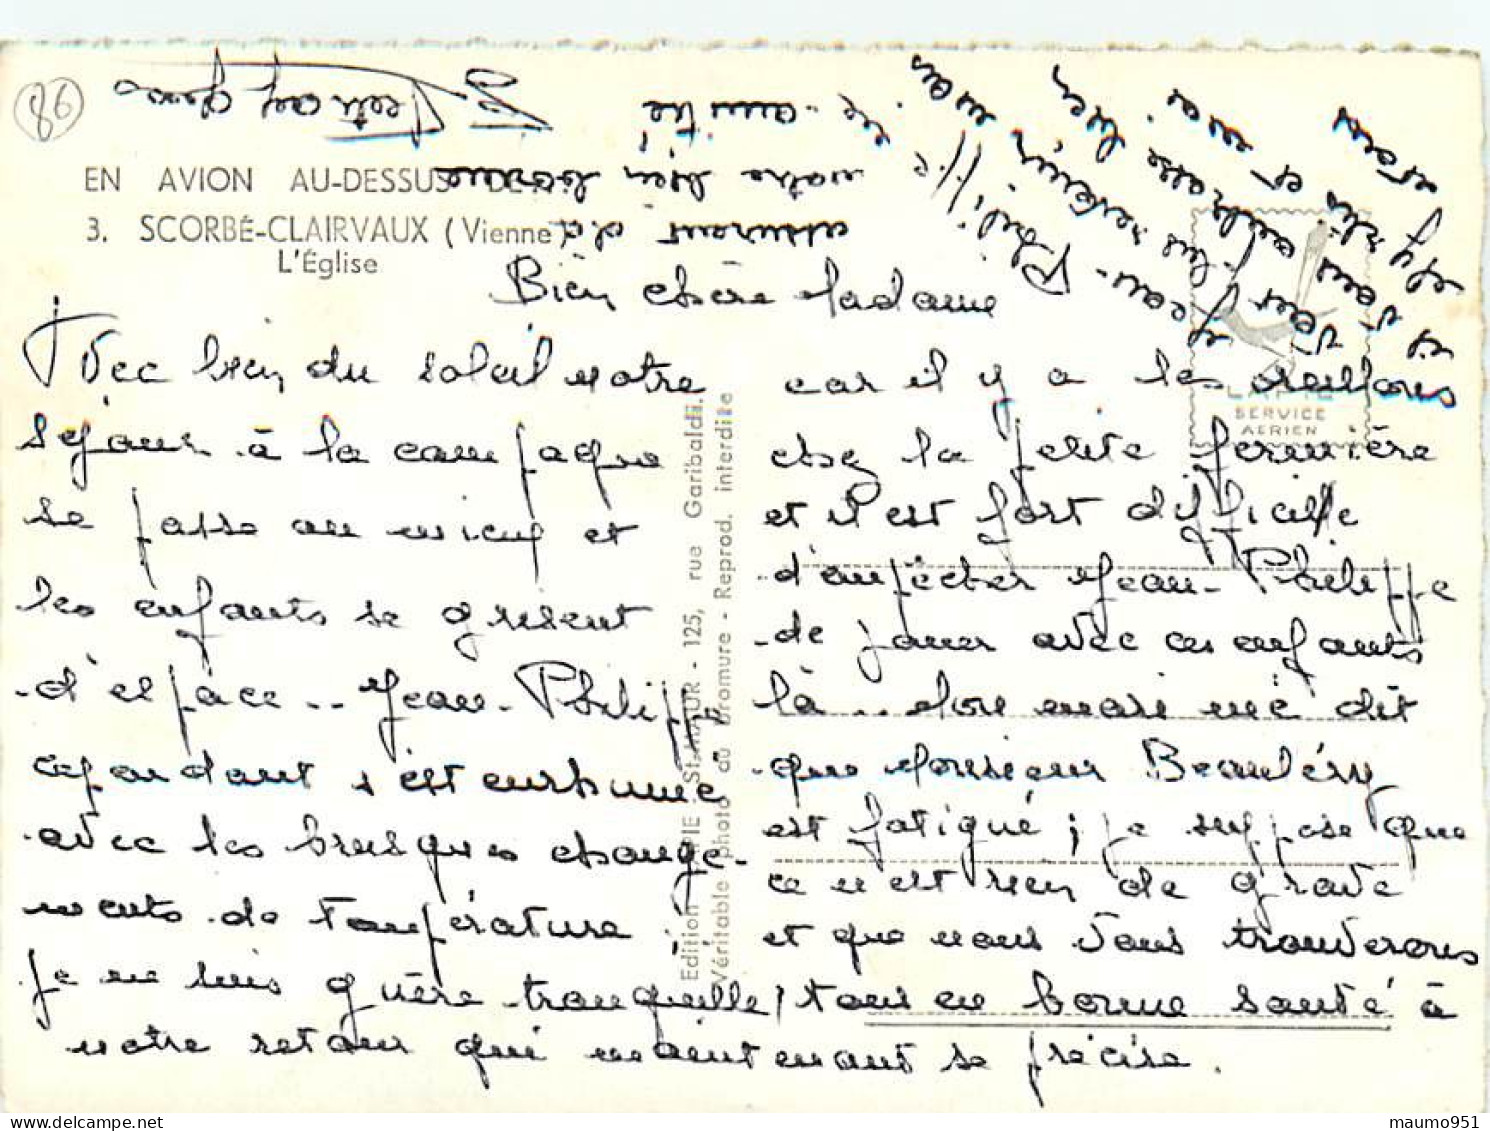 86
EN AVION AU-DESSUS DE
3. SCORBÉ-CLAIRVAUX (Vienne)
L'Église
Bien chère Madame
Avec bien du soleil notre
séjour à la campagne
se passe au mieux et
les enfants se grisent
d'espace.. Jean-Philippe
cependant s'est enrhumé
avec les brusques change-
ments de température.
Je ne suis guère tranquille,
car il y a les oreillons
chez la petite fermière
et il est fort difficile
d'empêcher Jean-Philippe
de jouer avec ces enfants
là.. Mon mari me dit
que Monsieur
est fatigué ; je suppose que
ce n'est rien de grave
et que nous vous trouverons
tous en bonne santé à
notre retour qui maintenant se précise.
Jean-Philippe
embrasse bien
assurant de
notre bien bonne
amitié
Edition LAPIE - St-MAUR - 125, rue Garibaldi.
Véritable photo au bromure - Reprod. interdite
LAPIE
SERVICE
AERIEN
maumo951